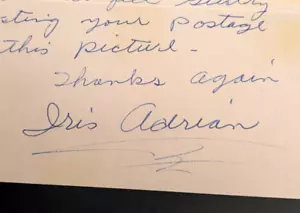 sting your Postage
this picture.
Thanks again
Iris Adrian